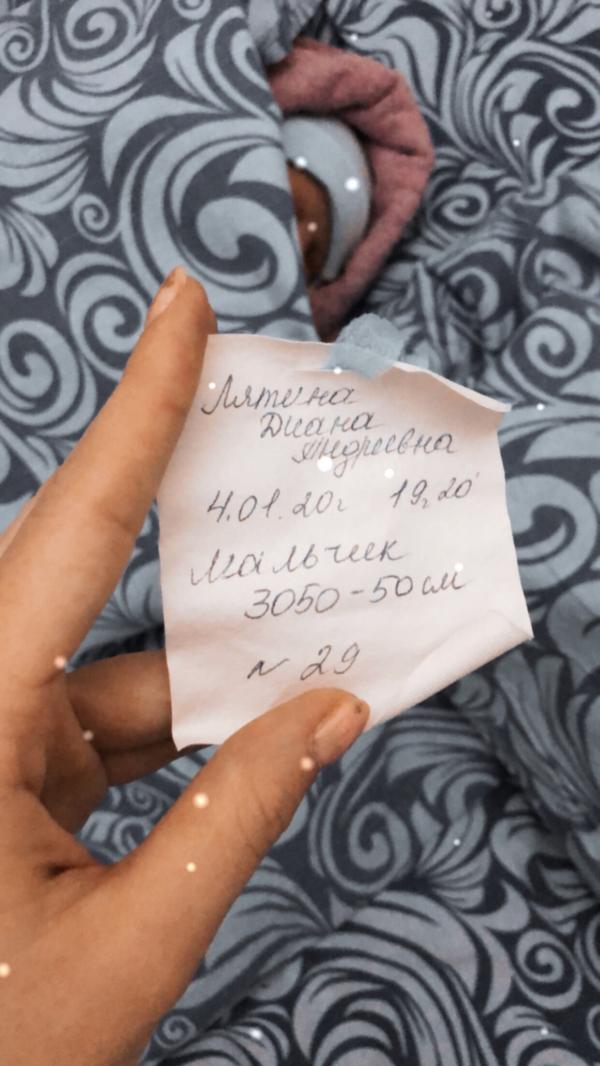 Лятина
Диана
Андреевна
4.01.20г 19ч 20'
Мальчик
3050-50см
N 29